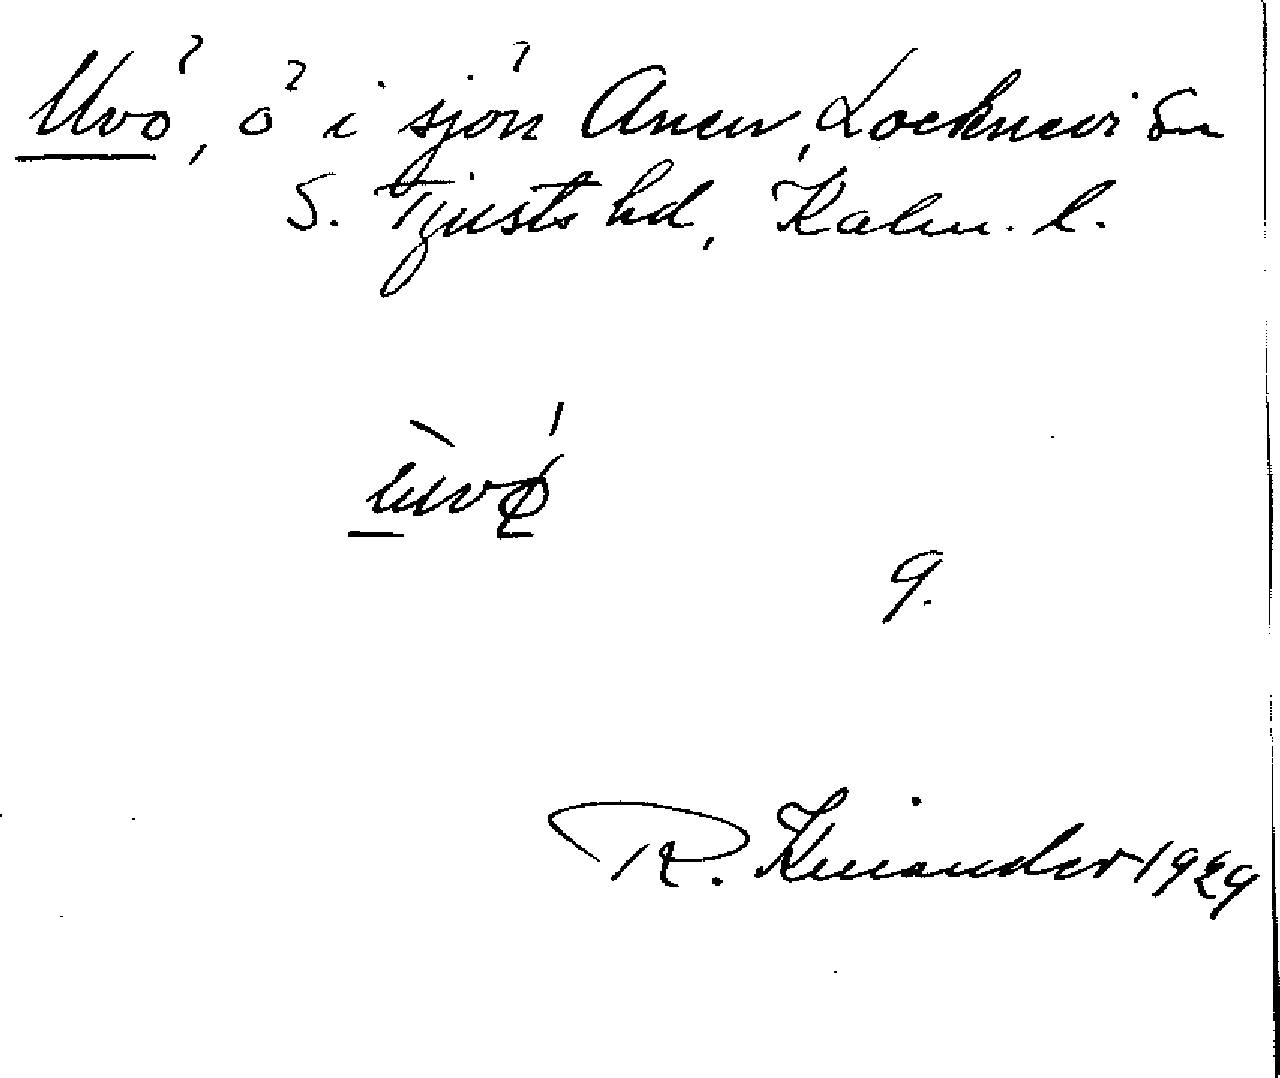 Uvö, ö i sjön Anen, Locknevi sn
S. Tjusts hd, Kalm. l.
ùvǿ
9.
R. Kinander 1929